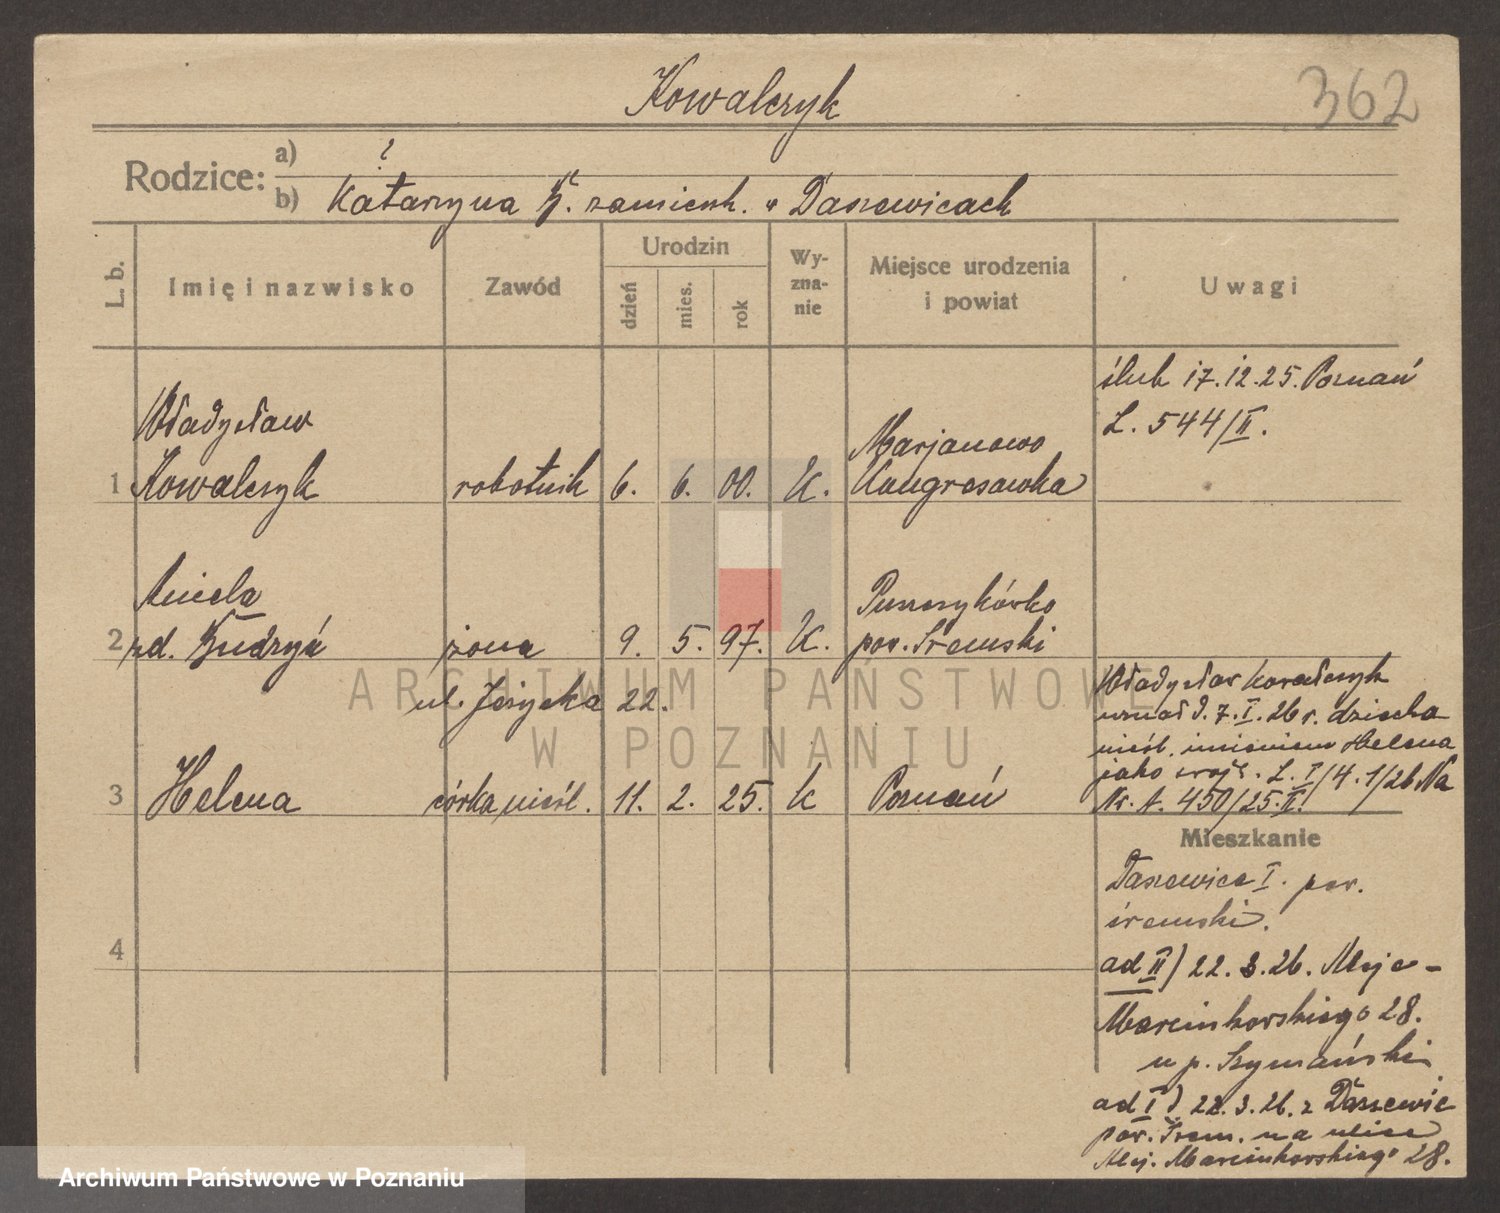 Kowalczyk
362
Rodzice:
a) ?
b) Katarzyna K. zamieszk. w Daszewicach
L. b.
Imię i nazwisko
Zawód
Urodzin
dzień
mies.
rok
Wy-
zna-
nie
Miejsce urodzenia
i powiat
Uwagi
ślub 17.12.25. Poznań
L. 544/II.
Władysław
Marjanowo
1 Kowalczyk robotnik 6. 6. 00. K. Kongresówka
Aniela
2 zd. żona 9. 5. 97. K. pow. Śremski
ul. Jeżycka 22.
Władysław Kowalczyk
uznał d. 7.I.26 r. dziecko
nieśl. imieniem Helena
jako swoje. L. I/4.1/26 Na
3 Helena córka nieśl. 11. 2. 25. K Poznań Nr. A. 450/25.II.
Mieszkanie
Daszewice I. pow.
śremski.
4
ad II) 22.3.26. Aleje
Marcinkowskiego 28.
u p. Szymański
ad I) 22.3.26. z Daszewic
pow. Śrem. na ulice
Alej. Marcinkowskiego 28.
ARCHIWUM PAŃSTWOWE
W POZNANIU
Archiwum Państwowe w Poznaniu